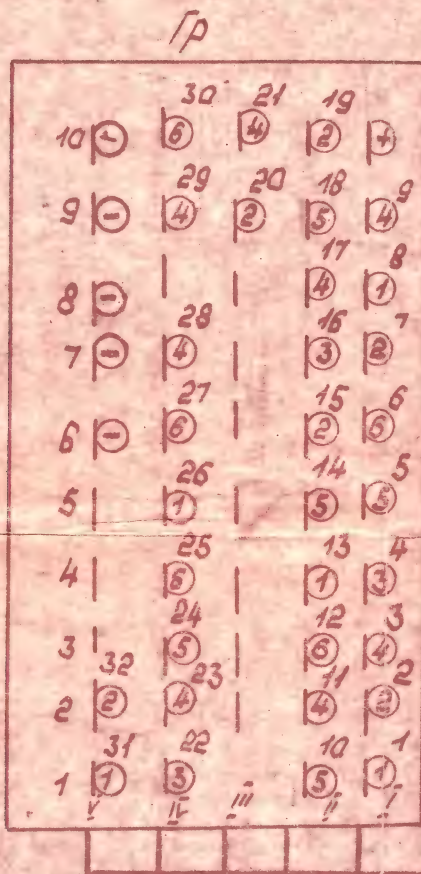 Гр
30 21 19
10 - 6 4 2 +
29 20 18 9
9 - 4 2 5 4
17 8
8 - 4 1
28 16 7
7 - 4 3 2
27 15 6
6 - 6 2 6
26 14 5
5 1 5 5
25 13 4
4 6 1 3
24 12 3
3 5 6 4
32 23 11 2
2 2 4 4 2
31 22 10 1
1 1 3 5 1
V IV III II I